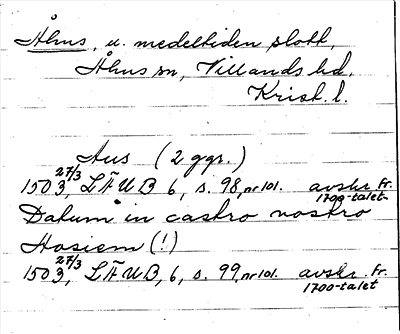 Åhus, u. medeltiden slott,
Åhus sn, Villands hd.
Krist. l.
Aus (2 ggr.)
1503 27/3, LÄUB 6, s. 98, nr 101. avskr. fr. 1700-talet
Datum in castro nostro
Hosiem (!)
1503 27/3, LÄUB, 6, s. 99, nr 101. avskr. fr. 1700-talet